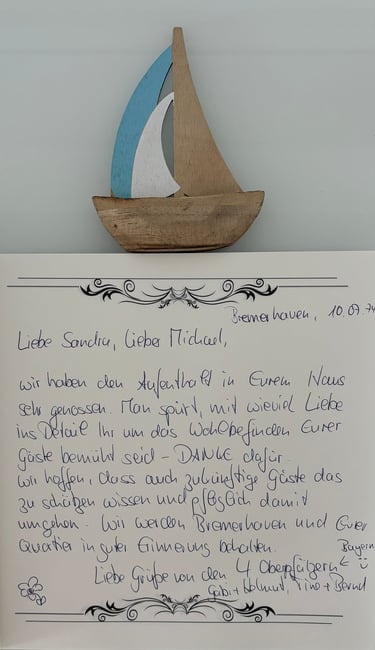 Bremerhaven, 10.07.
Liebe Sandra, lieber Michael,
wir haben den Aufenthalt in Eurem Haus
sehr genossen. Man spürt, mit wieviel Liebe
ins Detail Ihr um das Wohlbefinden Eurer
Gäste bemüht seid - DANKE dafür.
Wir hoffen, dass auch zukünftige Gäste das
zu schätzen wissen und pfleglich damit
umgehen. Wir werden Bremerhaven und Euer
Quartier in guter Erinnerung behalten.
Bayern
Liebe Grüße von den 4 Oberpfälzern
Gabi + Helmut, Tino + Bernd